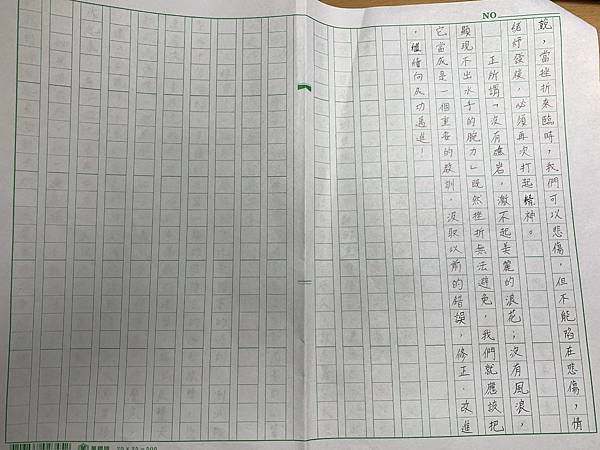 NO
說，當挫折來臨時，我們可以悲傷，但不能陷在悲傷，情
緒抒發後，必須再次打起精神。
正所謂「沒有礁岩，激不起美麗的浪花；沒有風浪，
顯現不出水手的腕力」既然挫折無法避免，我們就應該把
它當成是一個重要的教訓，汲取以前的錯誤，修正、改進
，繼續向成功邁進！